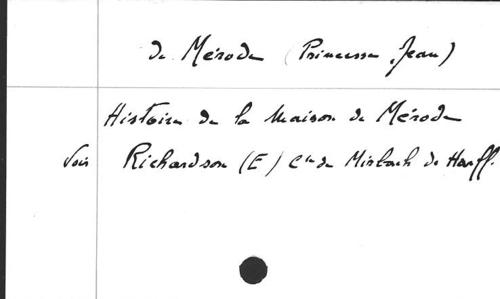 de Mérode (Princesse Jean)
Histoire de la Maison de Mérode
Voir Richardson (E) Cte de Mirbach de Harff.